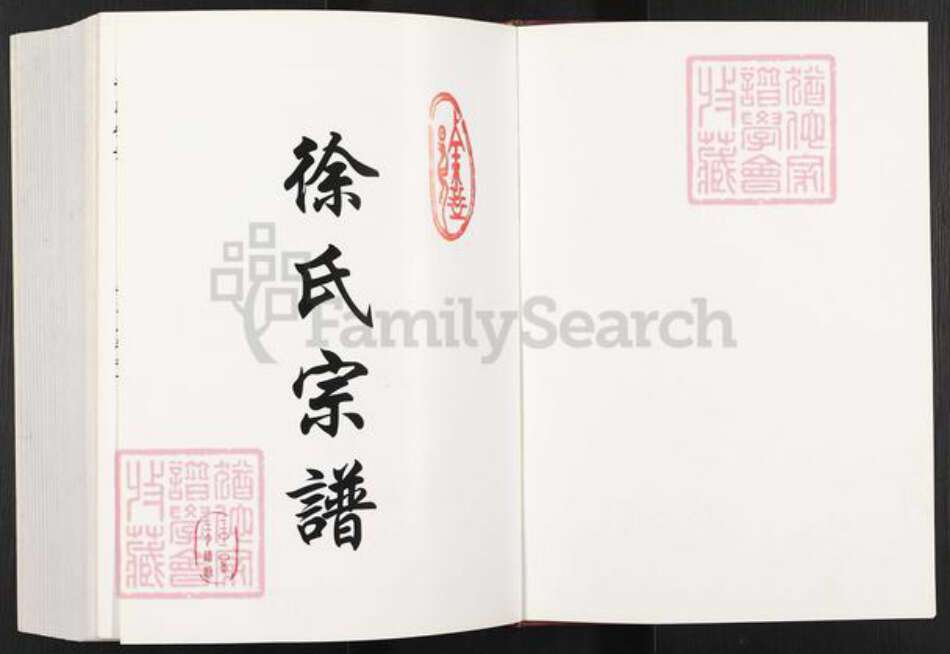 徐氏宗譜
猶他家
譜學會
收藏
FamilySearch
猶他家
譜學會
收藏